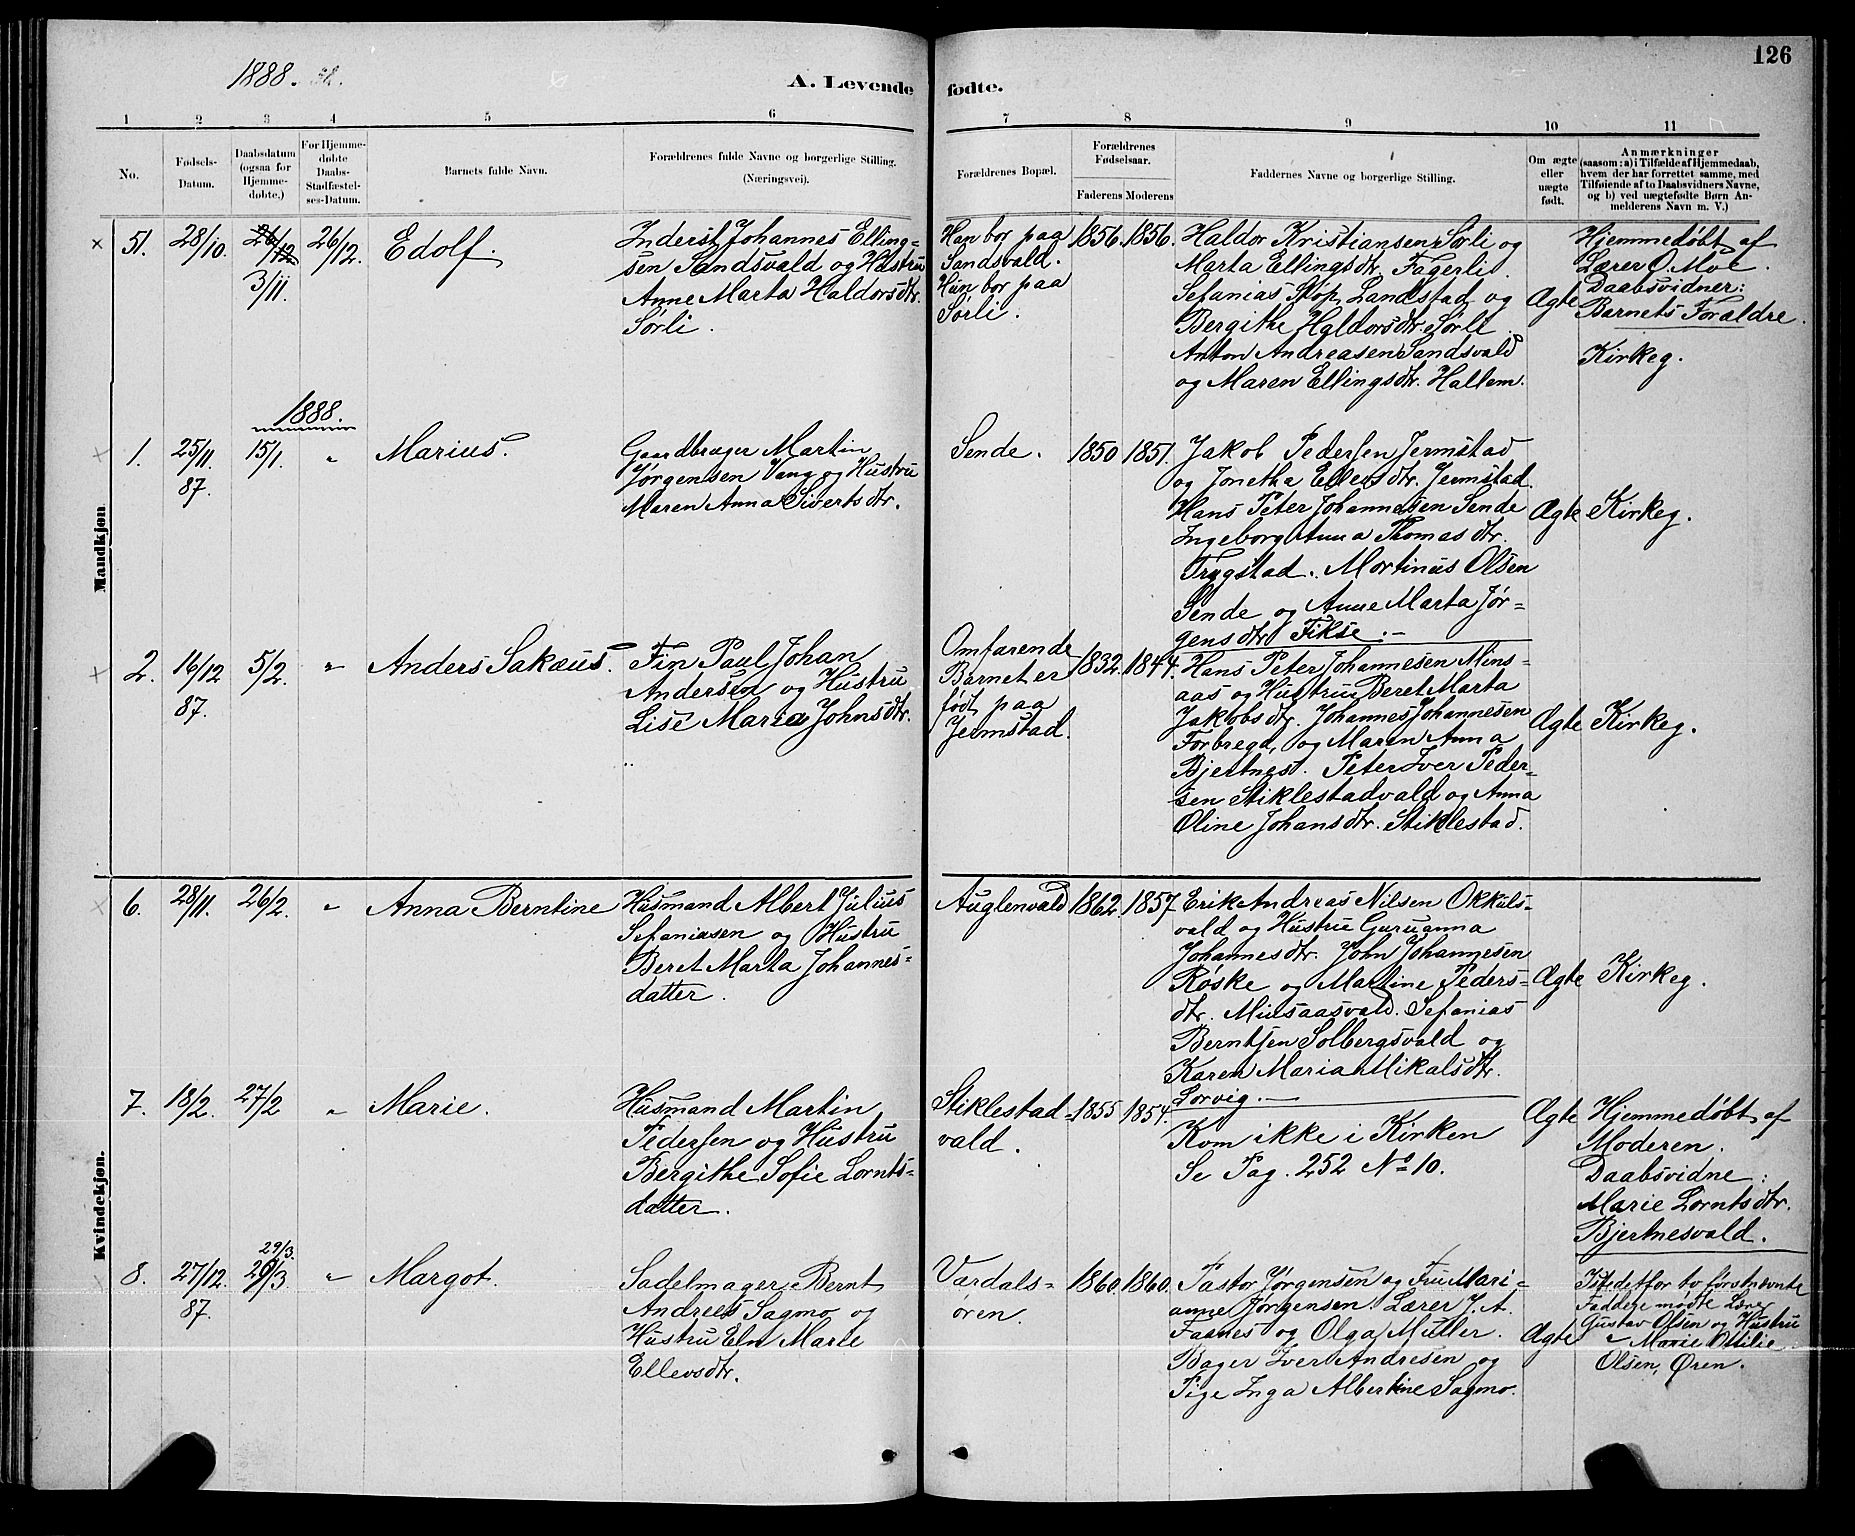 126
1888.
A. Levende fødte.
1 2 3 4 5 6 7 8 9 10 11
No.
Fødsels-
Datum.
Daabsdatum
(ogsaa for
Hjemme-
døbte.)
For Hjemme-
døbte
Daabs-
Stadfæstel-
ses-Datum.
Barnets fulde Navn.
Forældrenes fulde Navne og borgerlige Stilling.
(Næringsvei).
Forældrenes Bopæl.
Forældrenes
Fødselsaar.
Faderens Moderens
Faddernes Navne og borgerlige Stilling.
Om ægte
eller
uægte
født.
Anmærkninger
(saasom: a) i Tilfælde af Hjemmedaab,
hvem der har forrettet samme, med
Tilføiende af to Daabsvidners Navne,
og b) ved uægtefødte Børn An-
melderens Navn m. V.)
Mandkjøn.
× 51. 28/10. 26/12 26/12. Edolf.
3/11.
Inderst Johannes Elling-
sen Sandsvald og Hustru
Anne Marta Haldorsdtr.
Sørli.
Han bor paa
Sandsvald.
Hun bor paa
Sørli.
1856. 1856.
Haldor Kristiansen Sørli og
Marta Ellingsdtr. Fagerli.
Sefanias Støp, Landstad og
Bergithe Haldorsdtr. Sørli.
Anton Andreasen Sandsvald
og Maren Ellingsdtr. Hallem.
Ægte
Hjemmedøbt af
Lærer O. Moe.
Daabsvidner:
Barnets Forældre.
Kirkeg.
1888.
1. 25/11. 15/1. " Marius.
87.
Gaardbruger Martin
Jørgensen Vang og Hustru
Maren Anna Sivertsdtr.
Sende.
1850 1851.
Jakob Pedersen Jermstad
og Jonetha Ellevsdtr. Jermstad.
Hans Peter Johannesen Sende
Ingeborg Anna Thomasdtr.
Trygstad. Martinus Olsen
Sende og Anne Marta Jør-
gensdtr. Fikse.
Ægte
Kirkeg.
2. 16/12 5/2. " Anders Sakæus.
87.
Fin Paul Johan
Andersen og Hustru
Lise Maria Johnsdtr.
Omfarende
Barnet er
født paa
Jermstad.
1832. 1844.
Hans Peter Johannesen Mins-
aas og Hustru Beret Marta
Jakobsdtr. Johannes Johannesen
Forbregd, og Maren Anna
Bjertnes. Peter Iver Peder-
sen Stiklestadvald og Anna
Oline Johansdtr. Stiklestad.
Ægte
Kirkeg.
Kvindekjøn.
6. 28/11. 26/2. " Anna Berntine
Husmand Albert Julius
Sefaniasen og Hustru
Beret Marta Johannes-
datter.
Auglenvald
1862. 1857
Erik Andreas Nilsen Okkuls-
vald og Hustru Guruanna
Johannesdtr. John Johannesen
Røske og Martine Peders-
dtr. Minsaasvald. Sefanias
Berntsen Solbergsvald og
Karen Maria Mikalsdtr.
Lorvig.
Ægte
Kirkeg.
7. 18/2. 27/2 " Marie.
Husmand Martin
Pedersen og Hustru
Bergithe Sofie Lornts-
datter.
Stiklestad-
vald.
1855 1854.
Kom ikke i Kirken
Se Pag. 252 No 10.
Ægte
Hjemmedøbt af
Moderen.
Daabsvidne:
Marie Lorntsdtr.
Bjertnesvald.
29/3.
8. 27/12. 29/3 " Margot.
87.
Sadelmager Bernt
Andreas Sagmo og
Hustru Eln Marie
Ellevsdtr.
Værdals-
øren.
1860. 1860.
Pastor Jørgensen og Fru Mari-
anne Jørgensen. Lærer J. A.
Faanes og Olga Müller.
Bager Iver Andresen og
Pige Inga Albertine Sagmo.
Ægte
Istedetfor to førstnævnte
Faddere mødte Lærer
Gustav Olsen og Hustru
Marie Ottilie
Olsen, Øren.